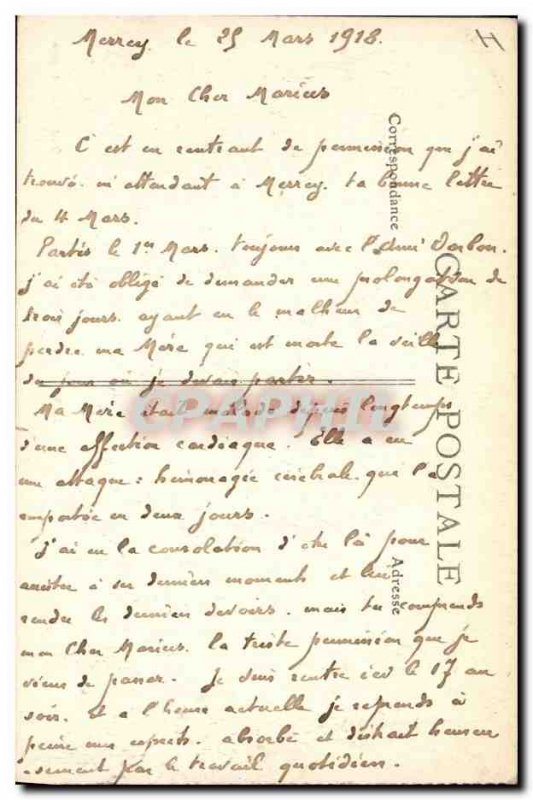 Merrey le 25 Mars 1918.
Mon Cher Marius
C'est en rentrant de permission que j'ai
trouvé m'attendant à Merrey ta bonne lettre
du 4 Mars.
Partis le 1er Mars. toujours avec l'Ami Dorbon.
j'ai été obligé de demander une prolongation de
trois jours. ayant eu le malheur de
perdre ma Mère qui est morte la veille
du jour où je devais partir.
Ma Mère était malade depuis longtemps
d'une affection cardiaque. Elle a eu
une attaque : hémoragie cérébrale qui l'a
emportée en deux jours.
j'ai eu la consolation d'être là pour
assister à ses derniers moments et lui
rendre les derniers devoirs. mais tu comprends
mon Cher Marius. la triste permission que je
viens de passer. Je suis rentré ici le 17 au
soir. et a l'heure actuelle je reprends à
peine mes esprits. absorbé et distrait heureu
-sement par le travail quotidien.
Correspondance
CARTE POSTALE
Adresse
CPAPHIL